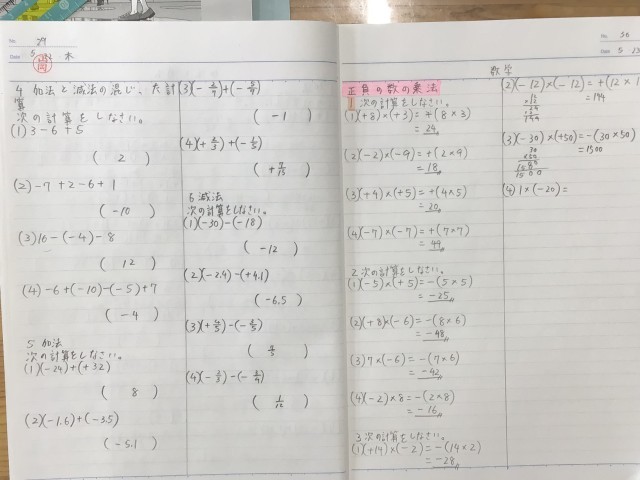 No. 29
Date 5 木
4 加法と減法の混じった計
算
次の計算をしなさい。
(1) 3-6+5
( 2 )
(2) -7+2-6+1
( -10 )
(3) 10-(-4)-8
( 12 )
(4) -6+(-10)-(-5)+7
( -4 )
5 加法
次の計算をしなさい。
(1)(-24)+(+32)
( 8 )
(2)(-1.6)+(-3.5)
( -5.1 )
(3)
( -1 )
(4)(+2/3)+(-1/5)
( +7/15 )
6 減法
次の計算をしなさい。
(1)(-30)-(-18)
( -12 )
(2)(-2.4)-(+4.1)
( -6.5 )
(3)
(4)(-2/3)-(-3/4)
( 1/12 )
No. 30
Date 5 23
数学
正負の数の乗法
1 次の計算をしなさい。
(1)(+8)×(+3)=+(8×3)
=24
(2)(-2)×(-9)=+(2×9)
=18
(3)(+4)×(+5)=+(4×5)
=20
(4)(-7)×(-7)=+(7×7)
=49
2 次の計算をしなさい。
(1)(-5)×(+5)=-(5×5)
=-25
(2)(+8)×(-6)=-(8×6)
=-48
(3) 7×(-6)=-(7×6)
=-42
(4)(-2)×8=-(2×8)
=-16
3 次の計算をしなさい。
(1)(+14)×(-2)=-(14×2)
=-28
(2)(-12)×(-12)=+(12×1
=144
(3)(-30)×(+50)=-(30×50)
=1500
(4) 1×(-20)=